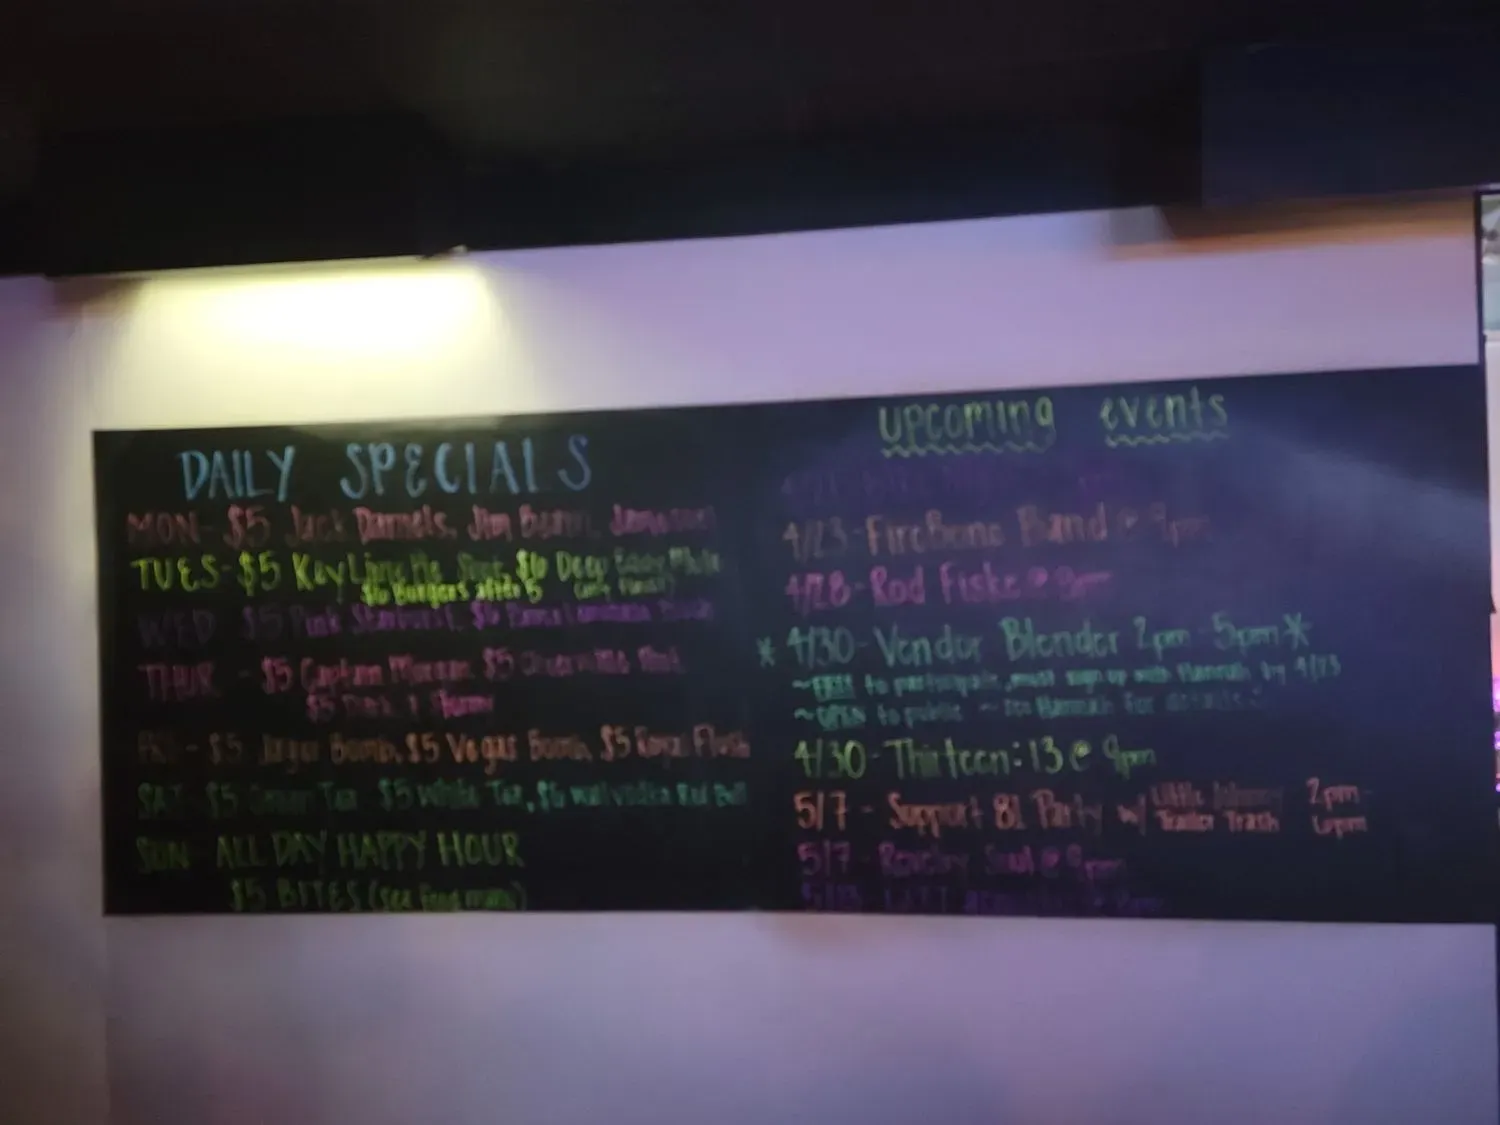 DAILY SPECIALS
MON - $5 Jack Daniels, Jim Beam, Jameson
TUES - $5 Key Lime Pie Shot, $6 Deep Eddy Mule
$6 Burgers after 5
WED $5 Pink Starburst, $6
THUR - $5 Captain Morgan, $5
$5 Dark & Stormy
FRI - $5 Jager Bomb, $5 Vegas Bomb, $5 Royal Flush
SAT - $5 Green Tea, $5 White Tea, $6 well vodka Red Bull
SUN - ALL DAY HAPPY HOUR
$5 BITES (see food menu)
UPCOMING events
4/23 - FireBone Band @ 9pm
4/28 - Rod Fiske @ 9pm
* 4/30 - Vendor Blender 2pm - 5pm *
~ FREE to participate, must sign up with Hannah by 4/23
~ OPEN to public ~ see Hannah for details
4/30 - Thirteen:13 @ 9pm
5/7 - Support 81 Party w/ Little Johnny 2pm -
Trailer Trash 6pm
5/7 - Soul @ 9pm